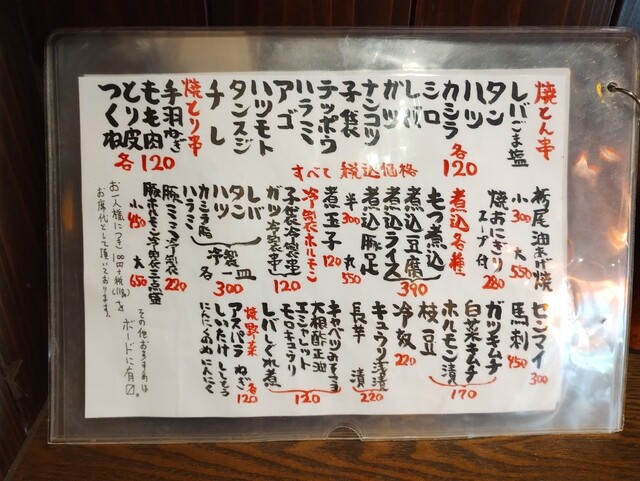 焼とん串
レバごま塩
タン
ハツ
カシラ
シロ
各120
レバ
ガツ
ナンコツ
子袋
テッポウ
ハラミ
アゴ
ハツモト
タンスジ
チレ
焼とり串
手羽ねぎ
もも肉
とり皮
つくね
各120
すべて税込価格
栃尾油あげ焼
小300 大550
焼おにぎり
スープ付 280
煮込各種
もつ煮込
煮込豆腐
煮込ライス
390
煮込豚足
半300 丸550
煮玉子 120
冷製ホルモン
子袋冷製串
ガツ冷製串
120
レバ
タン
ハツ
カシラ脂
ハラミ
冷製一皿
各300
豚ミミ冷製 220
豚ホルモン冷製三点盛
小450 大650
お一人様につき100円+税(110)を
お席代として頂いております。
センマイ 300
馬刺 450
ガツキムチ
白菜キムチ
ホルモン漬
170
枝豆
冷奴 220
キュウリ浅漬
長芋漬
220
キャベツみそマヨ
大根酢正油
エシャレット
モロキュウリ
レバしぐれ煮
120
焼野菜 各120
アスパラ ねぎ
しいたけ ししとう
にんにくあめ にんにく
その他おすすめは
ボードに有〼。